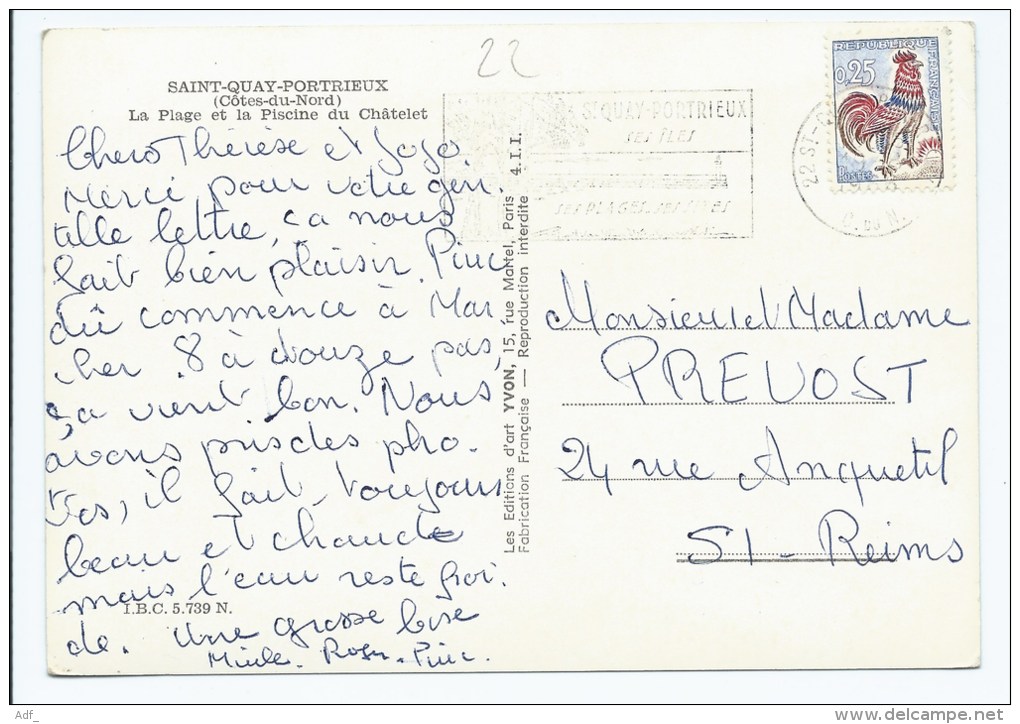 22
SAINT-QUAY-PORTRIEUX
(Côtes-du-Nord)
La Plage et la Piscine du Châtelet
Chers Thérèse et Jojo.
Merci pour votre gen.
tille lettre, ça nous
fait bien plaisir.
commence à Mar
cher 8 à douze pas,
ça vient bon. Nous
avons pris des pho.
tos, il fait toujours
beau et chaud
mais l'eau reste froi.
de. Une grosse bise
Roger.
I.B.C. 5.739 N.
Les Editions d'art YVON, 15, rue Martel, Paris
Fabrication Française — Reproduction interdite
4.I.I.
ST QUAY-PORTRIEUX
SES ÎLES
SES PLAGES, SES
REPUBLIQUE FRANÇAISE
0,25
POSTES
22 ST-
C. DU N.
Monsieur et Madame
PREVOST
24 rue Anquetil
51 - Reims
Adf_
delcampe.net